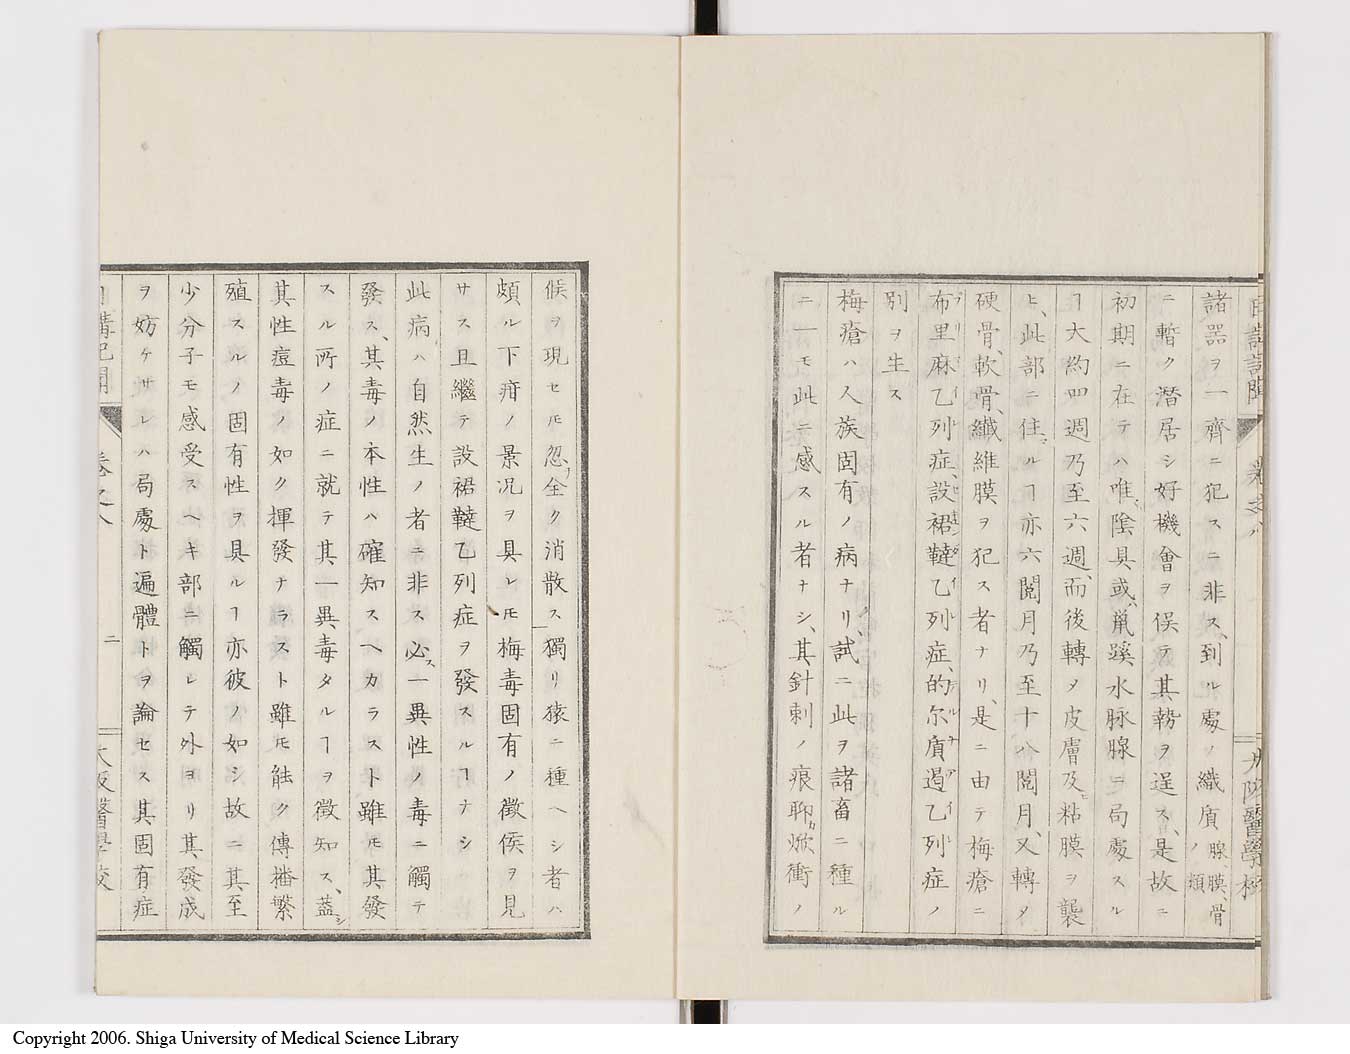 諸器ヲ一齊ニ犯スニ非ス、到ル處ノ織質腺、膜、骨ノ類
ニ暫ク潜居シ好機會ヲ俟テ其勢ヲ逞ス、是故ニ
初期ニ在テハ唯陰具或ハ鼠蹊水脉腺ヲ局處スル
ヿ大約四週乃至六週、而後轉メ皮膚及ヒ粘膜ヲ襲
ヒ、此部ニ住ルヿ亦六閲月乃至十八閲月、又轉メ
硬骨、軟骨、纎維膜ヲ犯ス者ナリ、是ニ由テ梅瘡ニ
布里麻乙列症、設裙韃乙列症、的尔質遏乙列症ノ
別ヲ生ス
梅瘡ハ人族固有ノ病ナリ、試ニ此ヲ諸畜ニ種ル
ニ一モ此ニ感スル者ナシ、其針刺ノ痕聊カ焮衝ノ
候ヲ現セモ忽チ全ク消散ス獨リ猿ニ種ヘシ者ハ
頗ル下疳ノ景况ヲ具レモ梅毒固有ノ徴侯ヲ見
サス且繼テ設裙韃乙列症ヲ發スルヿナシ
此病ハ自然生ノ者ニ非ス必ス一異性ノ毒ニ觸テ
發ス、其毒ノ本性ハ確知スヘカラスト雖モ其發
スル所ノ症ニ就テ其一異毒タルヿヲ徴知ス、蓋シ
其性痘毒ノ如ク揮發ナラスト雖モ能ク傳播繁
殖スルノ固有性ヲ具ルヿ亦彼ノ如シ故ニ其至
少分子モ感受スヘキ部ニ觸レテ外ヨリ其發成
ヲ妨ケサレハ局處ト遍體トヲ論セス其固有症
卷之八
二
大阪醫學校